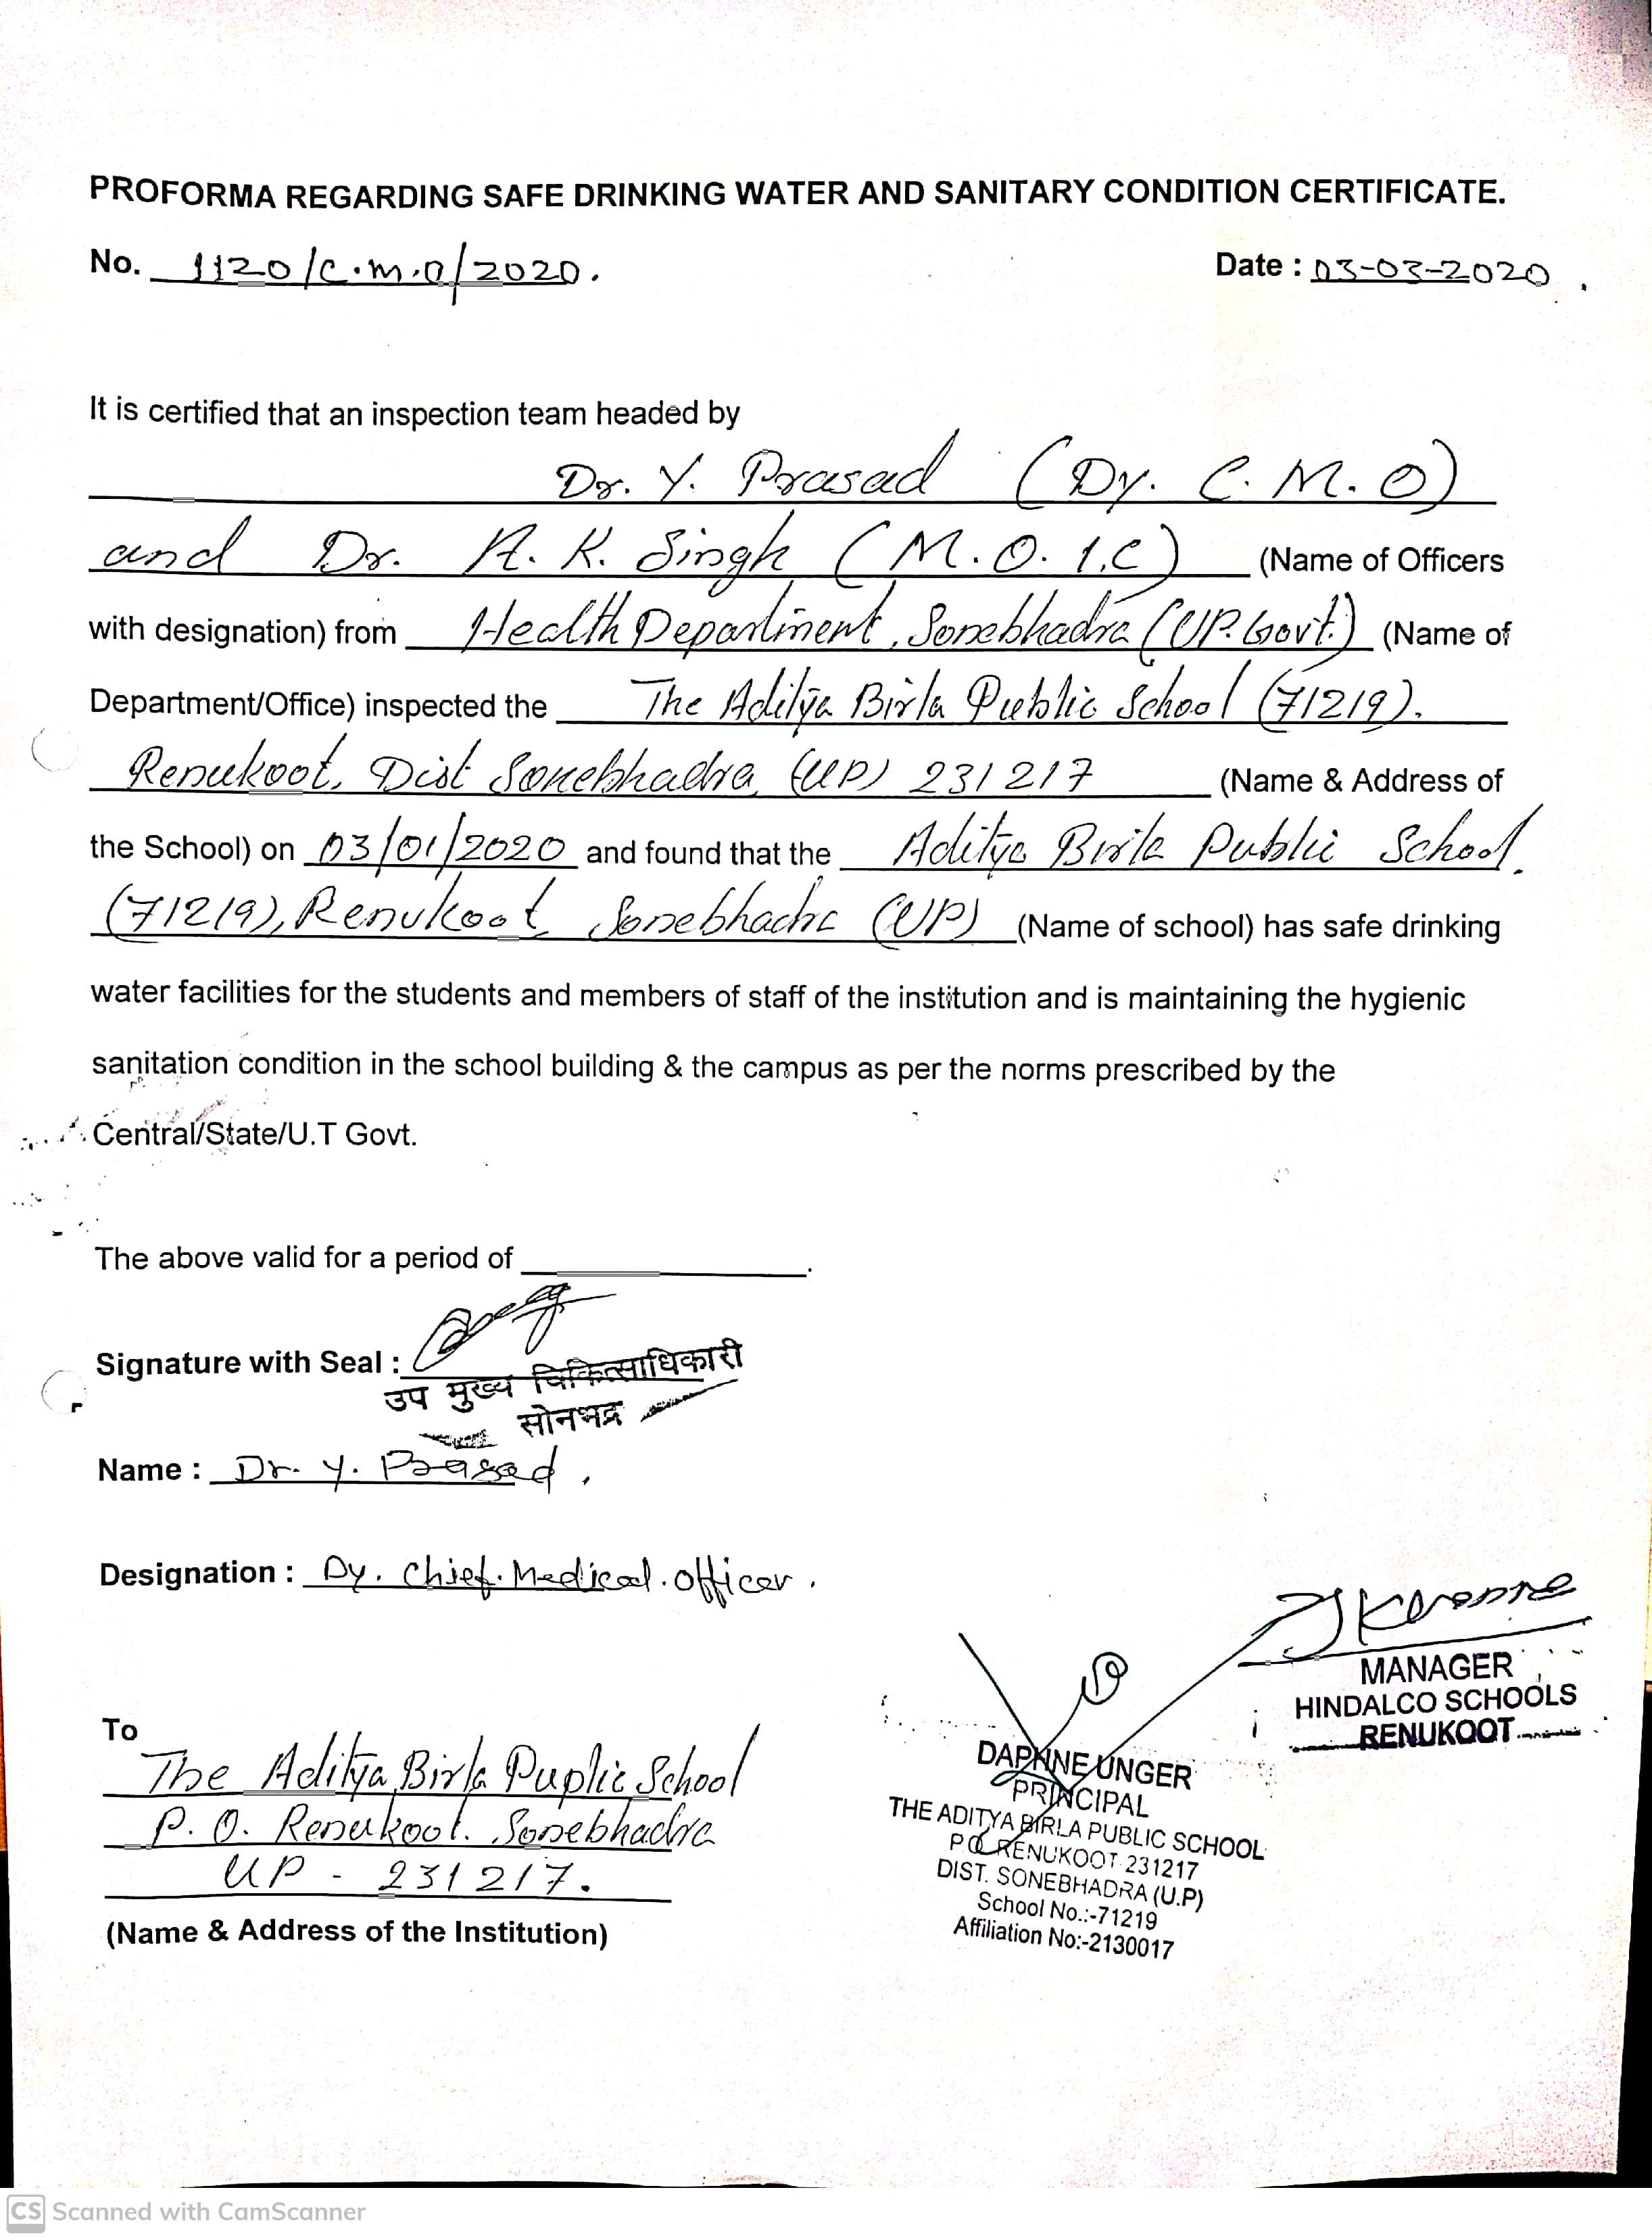 PROFORMA REGARDING SAFE DRINKING WATER AND SANITARY CONDITION CERTIFICATE.
No. 1120/C.M.O/2020.
Date : 03-03-2020
It is certified that an inspection team headed by
Dr. Y. Prasad (Dy. C.M.O)
and Dr. A. K. Singh (M.O.I.C) (Name of Officers
with designation) from Health Department, Sonebhadra (UP. Govt.) (Name of
Department/Office) inspected the The Aditya Birla Public School (71219).
Renukoot, Dist Sonebhadra, (UP) 231217 (Name & Address of
the School) on 03/01/2020 and found that the Aditya Birla Public School.
(71219), Renukoot, Sonebhadra (UP) (Name of school) has safe drinking
water facilities for the students and members of staff of the institution and is maintaining the hygienic
sanitation condition in the school building & the campus as per the norms prescribed by the
Central/State/U.T Govt.
The above valid for a period of ____________.
Signature with Seal :
उप मुख्य चिकित्साधिकारी
सोनभद्र
Name : Dr. Y. Prasad.
Designation : Dy. Chief. Medical. officer.
MANAGER
HINDALCO SCHOOLS
RENUKOOT
To
The Aditya Birla Puplic School
P. O. Renukoot. Sonebhadra
UP - 231217.
(Name & Address of the Institution)
DAPHNE UNGER
PRINCIPAL
THE ADITYA BIRLA PUBLIC SCHOOL
P.O. RENUKOOT 231217
DIST. SONEBHADRA (U.P)
School No.:-71219
Affiliation No:-2130017
CS Scanned with CamScanner